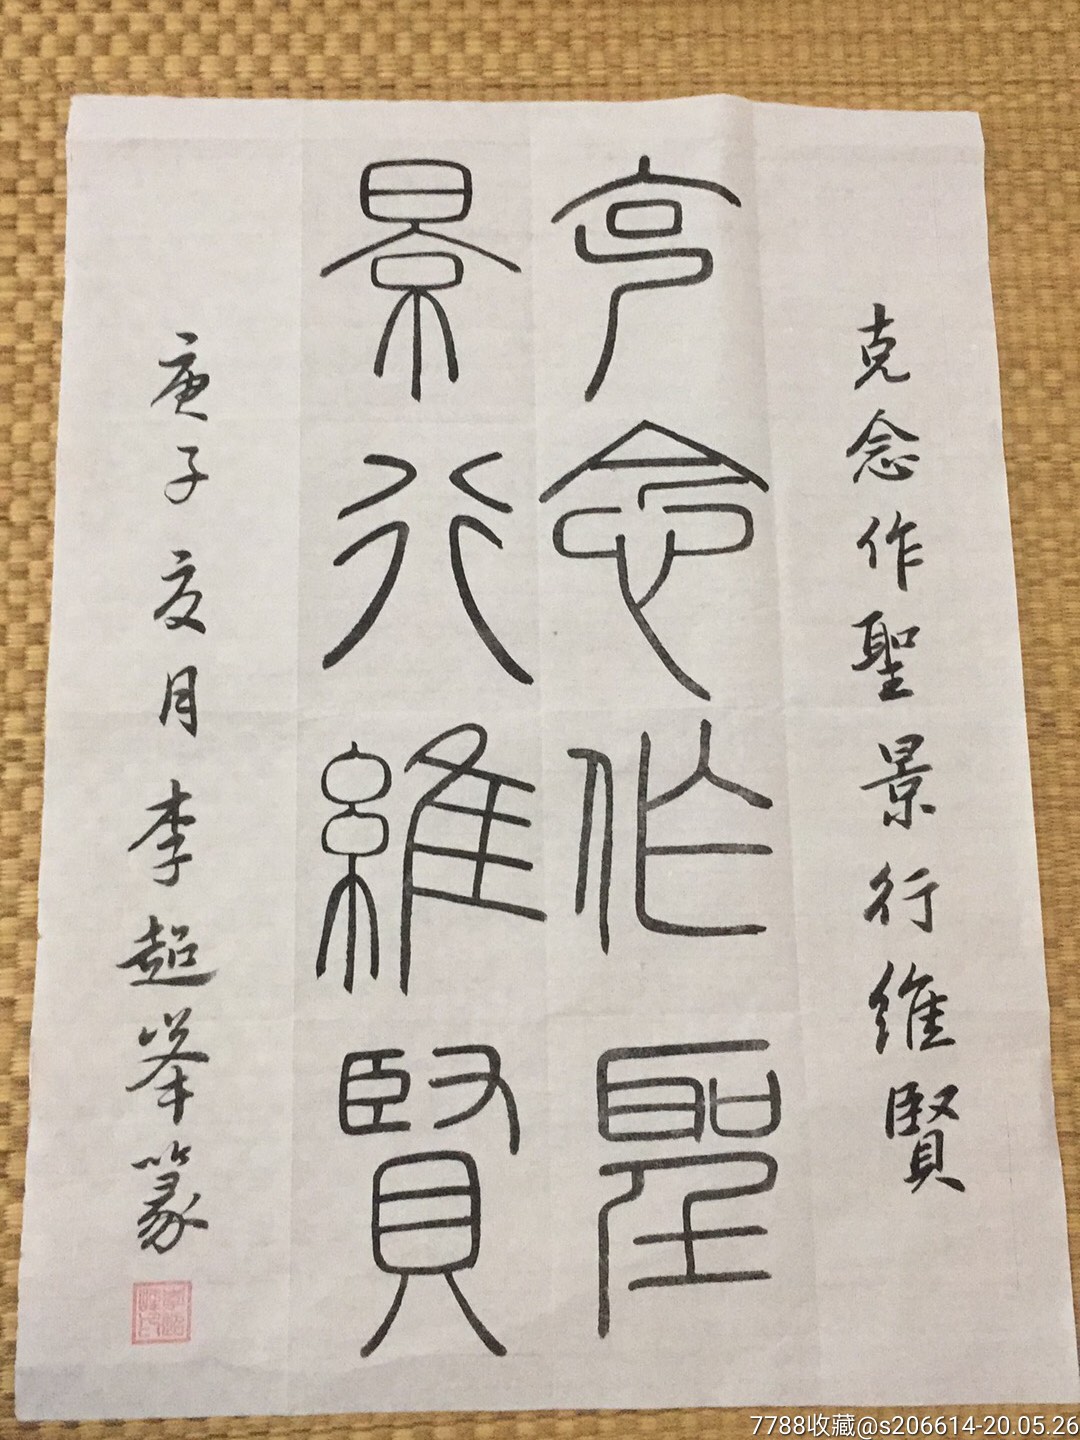 克念作聖景行維賢
克念作聖
景行維賢
庚子夏月李超峯篆
7788收藏@s206614-20.05.26